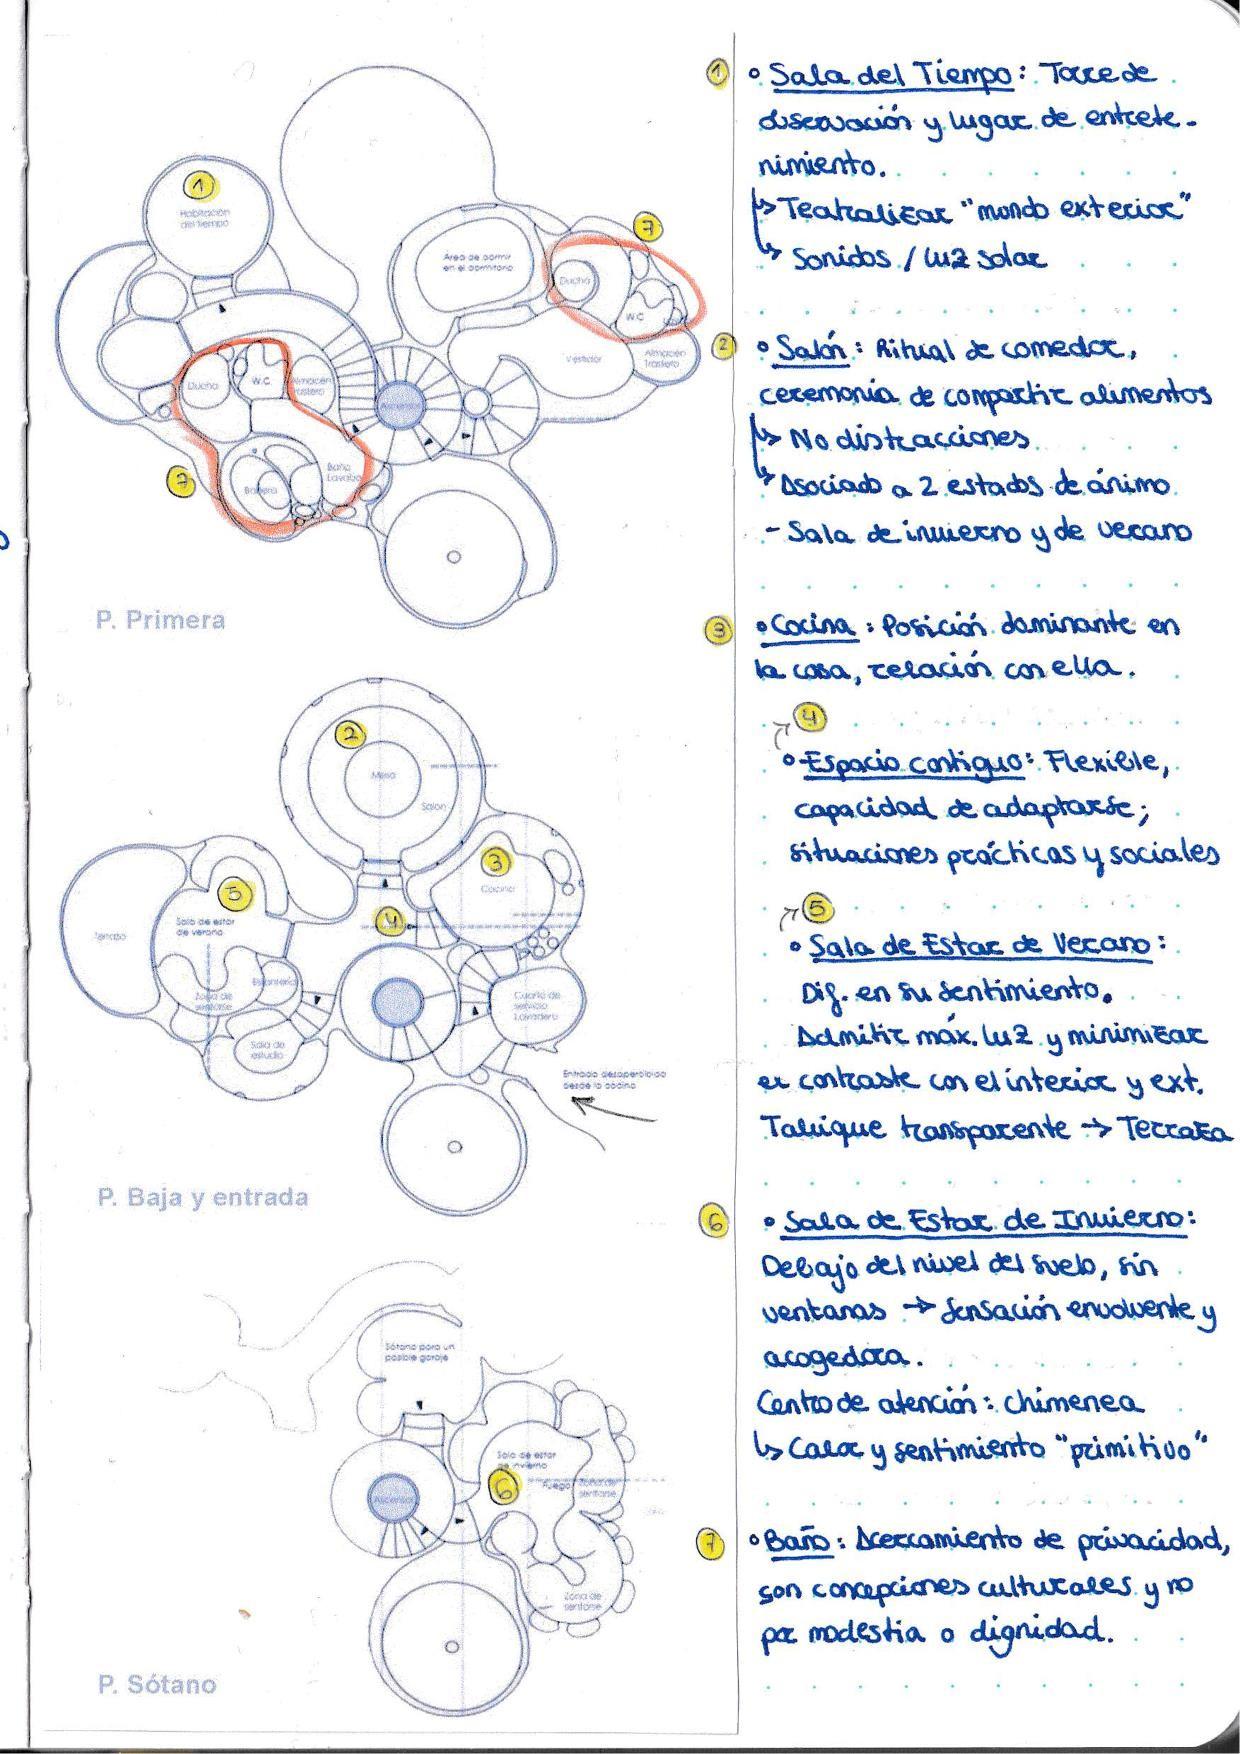 1
Habitación
del tiempo
7
Área de dormir
en el dormitorio
Ducha
W.C
Vestidor
Almacén
Trastero
Ducha
W.C
Almacén
Trastero
Ascensor
7
Bañera
Baño
Lavabo
P. Primera
2
Mesa
Salón
3
Cocina
4
5
Sala de estar
de verano
Terraza
Estantería
Zona de
sentarse
Sala de
estudio
Cuarto de
servicio
Lavadero
Entrada desapercibida
desde la cocina
P. Baja y entrada
Sótano para un
posible garaje
Sala de estar
de invierno
6
Fuego
Zona de
sentarse
Ascensor
Zona de
sentarse
P. Sótano
1 • Sala del Tiempo: Torre de
observación y lugar de entrete-
nimiento.
↳ Teatralizar "mundo exterior"
↳ Sonidos / luz solar
2 • Salón: Ritual de comedor,
ceremonia de compartir alimentos
↳ No distracciones
↳ Asociado a 2 estados de ánimo
- Sala de invierno y de verano
3 • Cocina: Posición dominante en
la casa, relación con ella.
4
• Espacio contiguo: Flexible,
capacidad de adaptarse;
situaciones prácticas y sociales
5
• Sala de Estar de Verano:
Dif. en su sentimiento.
Admitir máx. luz y minimizar
el contraste con el interior y ext.
Tabique transparente → Terraza
6 • Sala de Estar de Invierno:
Debajo del nivel del suelo, sin
ventanas → Sensación envolvente y
acogedora.
Centro de atención: chimenea
↳ Calor y sentimiento "primitivo"
7 • Baño: Acercamiento de privacidad,
son concepciones culturales y no
por modestia o dignidad.